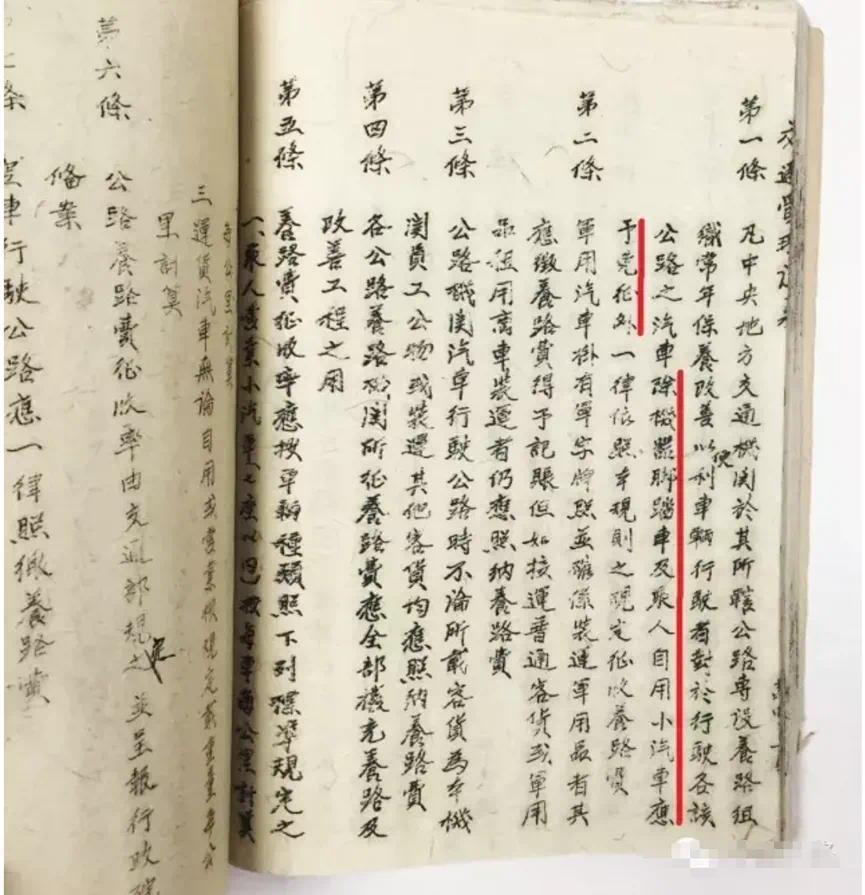 第一條 凡中央地方交通機関於其所轄公路專設養路組
織常年保養改善以利便車輛行駛者對於行駛各該
公路之汽車除機器脚踏車及乘人自用小汽車應
予免征外一律依照本規則之規定征收養路費
第二條 軍用汽車掛有軍字牌照並確係裝運軍用品者其
應徵養路費得予記賬但如接運普通客貨或軍用
品租用商車裝運者仍應照納養路費
第三條 公路機関汽車行駛公路時不論所載客貨為本機
関員工公物或裝運其他客貨均應照納養路費
第四條 各公路養路機関所征養路費應全部撥充養路及
改善工程之用
第五條 養路費征收率應按車輛種類照下列標準規定之
一、乘人營業小汽車之座以 按每車每公里計算
每公里計算
三運貨汽車無論自用或營業按規定載重量每公
里計算
第六條 公路養路費征收率由交通部規定之並呈報行政院
備案
條 空車行駛公路應一律照徵養路費